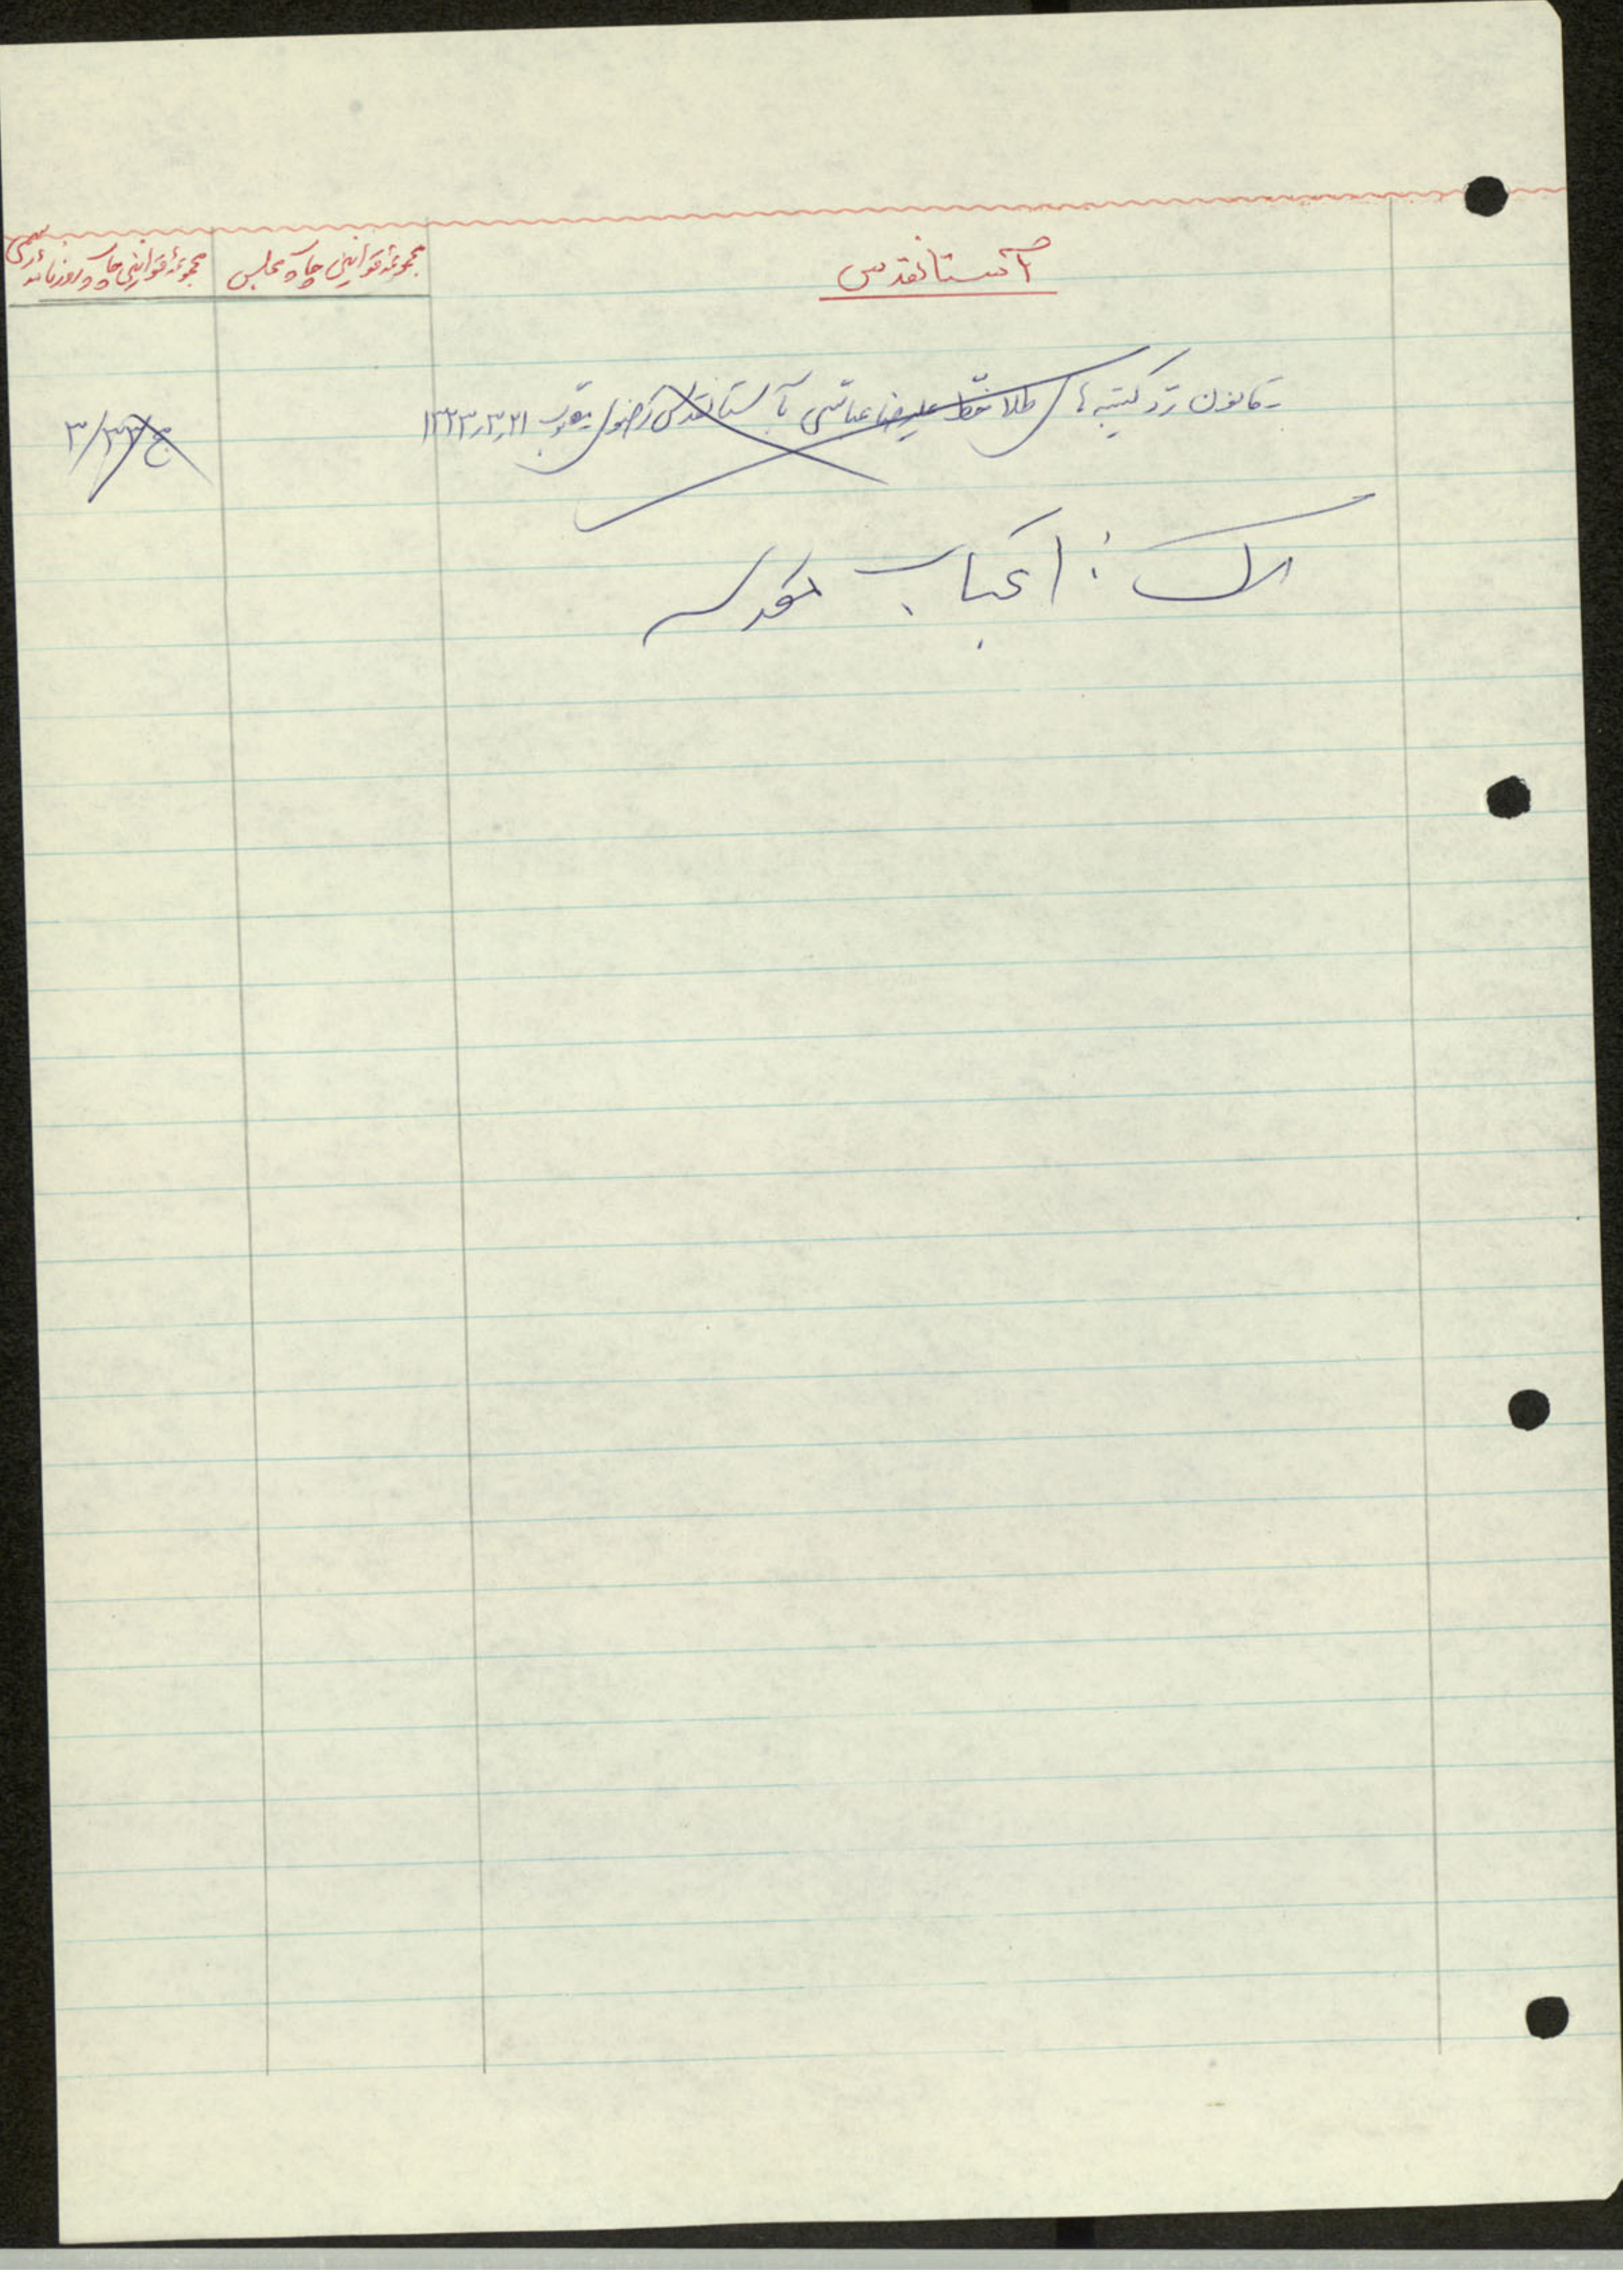 آستانقدس
مجموعهٔ قوانین چاپ مجلس
مجموعهٔ قوانین چاپ روزنامهٔ رسمی
- قانون رد کتیبه‌های طلا خط علیرضا عباسی بآستانقدس رضوی مصوب ۱۳۲۳٫۳٫۲۱
ج ۳۳/۳
ر.ک : اعتاب مقدسه